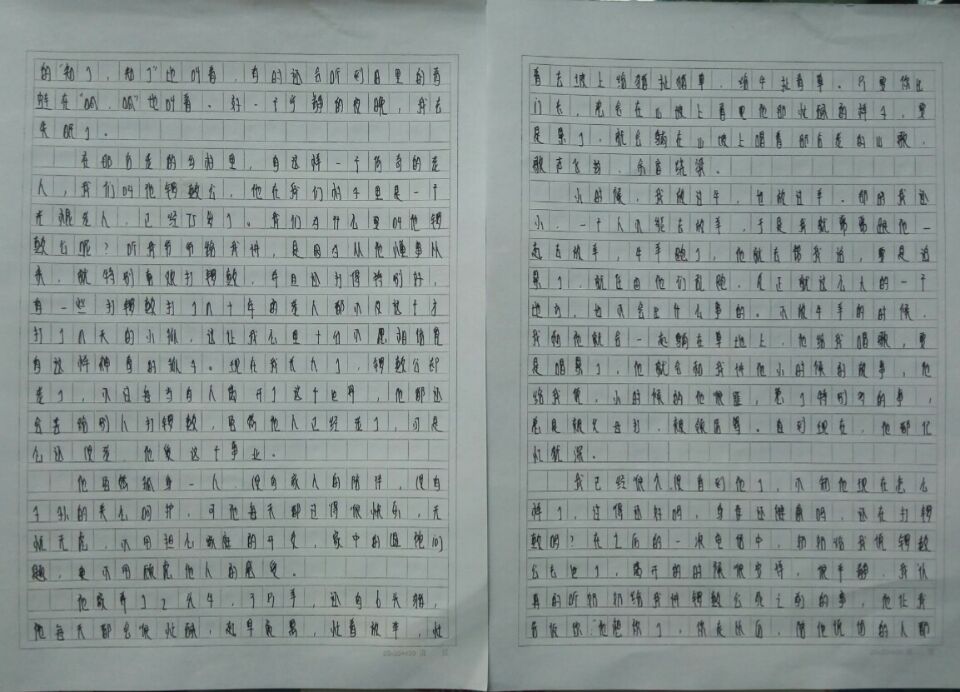 的“知了，知了”也叫着，有的还会听到田里的青
蛙在“呱，呱”也叫着。好一个宁静的夜晚，我去
失眠了。
在那古老的乡村里，有这样一个传奇的老
人，我们叫他锣鼓公，他在我们的年里是一个
无儿老人，已经75岁了。我们为什么要叫他锣
鼓公呢？听我爷爷给我讲，是因为从他懂事从
来，就特别喜欢打锣鼓，并且还打得特别好，
有一些打锣鼓打了几十年的老人都不及这个才
打了几天的小孩，这让我公里十分不愿相信是
有这样神奇的孩子。现在我长大了，锣鼓公却
老了，不过每当有人离开了这个世界，他都还
会去给别人打锣鼓，虽然他人已经老了，可是
心还没老，他爱这个事业。
他虽然孤身一人，没有家人的陪伴，没有
子孙的关心呵护，可他每天都过得很快乐，无
忧无虑，不用担心家庭的开支，家中的温饱问
题，更不用顾虑他人的感受。
他家养了2头牛，3只羊，还有6头猪，
他每天都会很忙碌，起早贪黑，忙着放羊，忙
着去坡上给猪扯猪草，给牛扯青草。只要你出
门去，总会在山坡上看见他那忙碌的样子，要
是累了，就会躺在山坡上唱着那古老的山歌，
歌声飞扬，余音绕梁。
小的时候，我放过牛，也放过羊。那时我还
小，一个人不能去放羊，于是我就常常跟他一
起去放羊，牛羊跑了，他就去帮我追，要是追
累了，就任由他们乱跑，反正就这么大的一个
地方，也不会出什么事的。不放牛羊的时候，
我和他就会一起躺在草地上，他给我唱歌，要
是唱累了，他就会和我讲他小时候的故事，他
给我说，小时候的他很匪，惹了特别多的事，
总是被父母打，被领居骂。直到现在，他都记
忆犹深。
我已经很久没看到他了，不知他现在怎么
样了，过得还好吗，身体还健康吗，还在打锣
鼓吗？在上周的一次电话中，奶奶给我说锣鼓
公去世了，离开的时候很安详，很平静，我认
真的听奶奶给我讲锣鼓公死之前的事，他让我